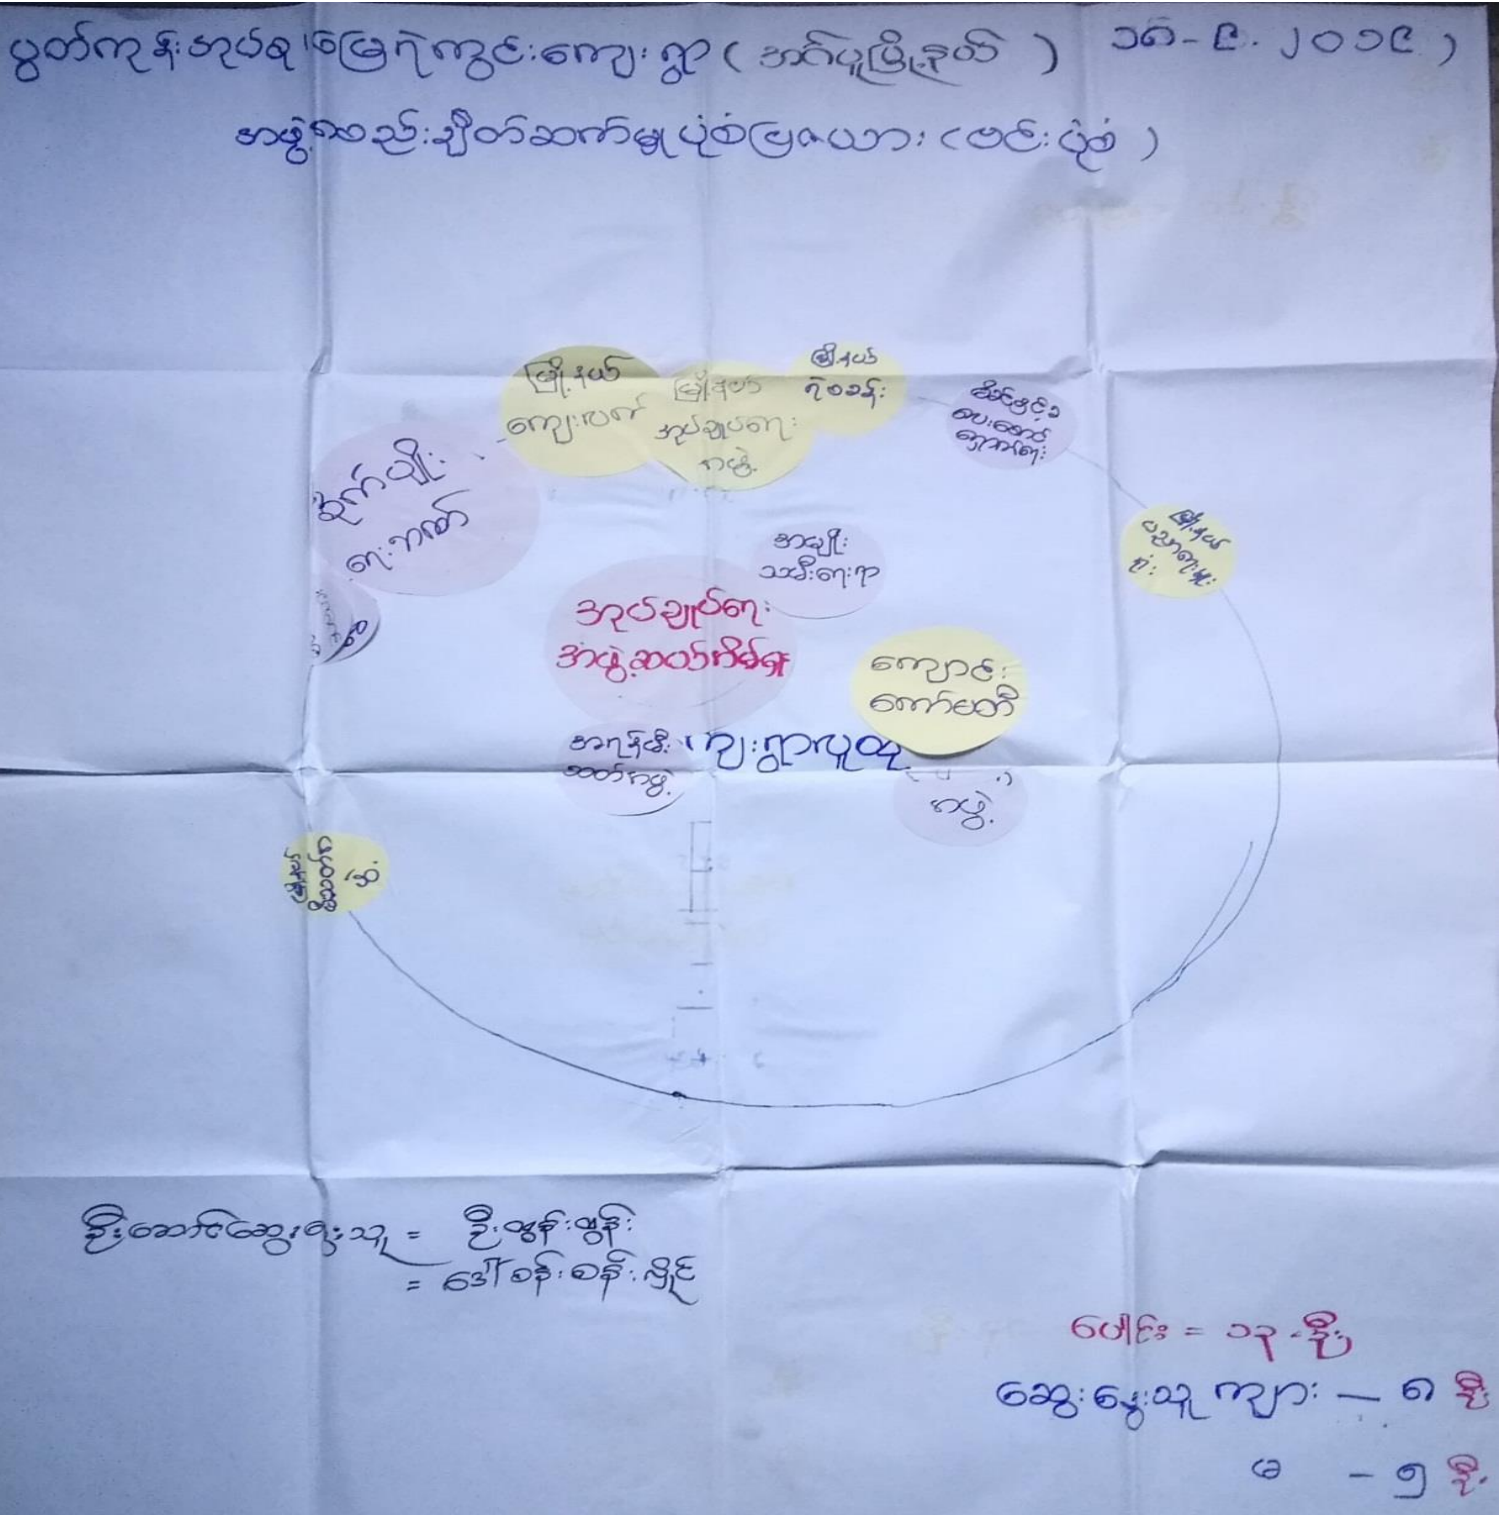 ပွတ်ကုန်းအုပ်စု၊ မြေဲကွင်းကျေးရွာ ( အင်္ဂပူမြို့နယ် ) ၁၈-၉-၂၀၁၉ )
အဖွဲ့အစည်းချိတ်ဆက်မှုပုံစံပြဇယား (ဗင်းပုံစံ )
မြို့နယ်
ကျေးလက်
မြို့နယ်
အုပ်ချုပ်ရေး
အဖွဲ့
မြို့နယ်
ရဲစခန်း
မြို့နယ်
ပညာရေးမှူး
ရုံး
စိုက်ပျိုး
ရေးဘဏ်
အမျိုး
သမီးရေးရာ
အုပ်ချုပ်ရေး
ကျောင်း
ကော်မတီ
အရန်မီး
သတ်အဖွဲ့
ကျေးရွာလူထု
အဖွဲ့
ဦးဆောင်ဆွေးနွေးသူ = ဦးထွန်းထွန်း
= ဒေါ်စန်းစန်းလှိုင်
ပေါင်း = ၁၃-ဦး
ဆွေးနွေးသူ ကျား — ၈ ဦး
မ - ၅ ဦး